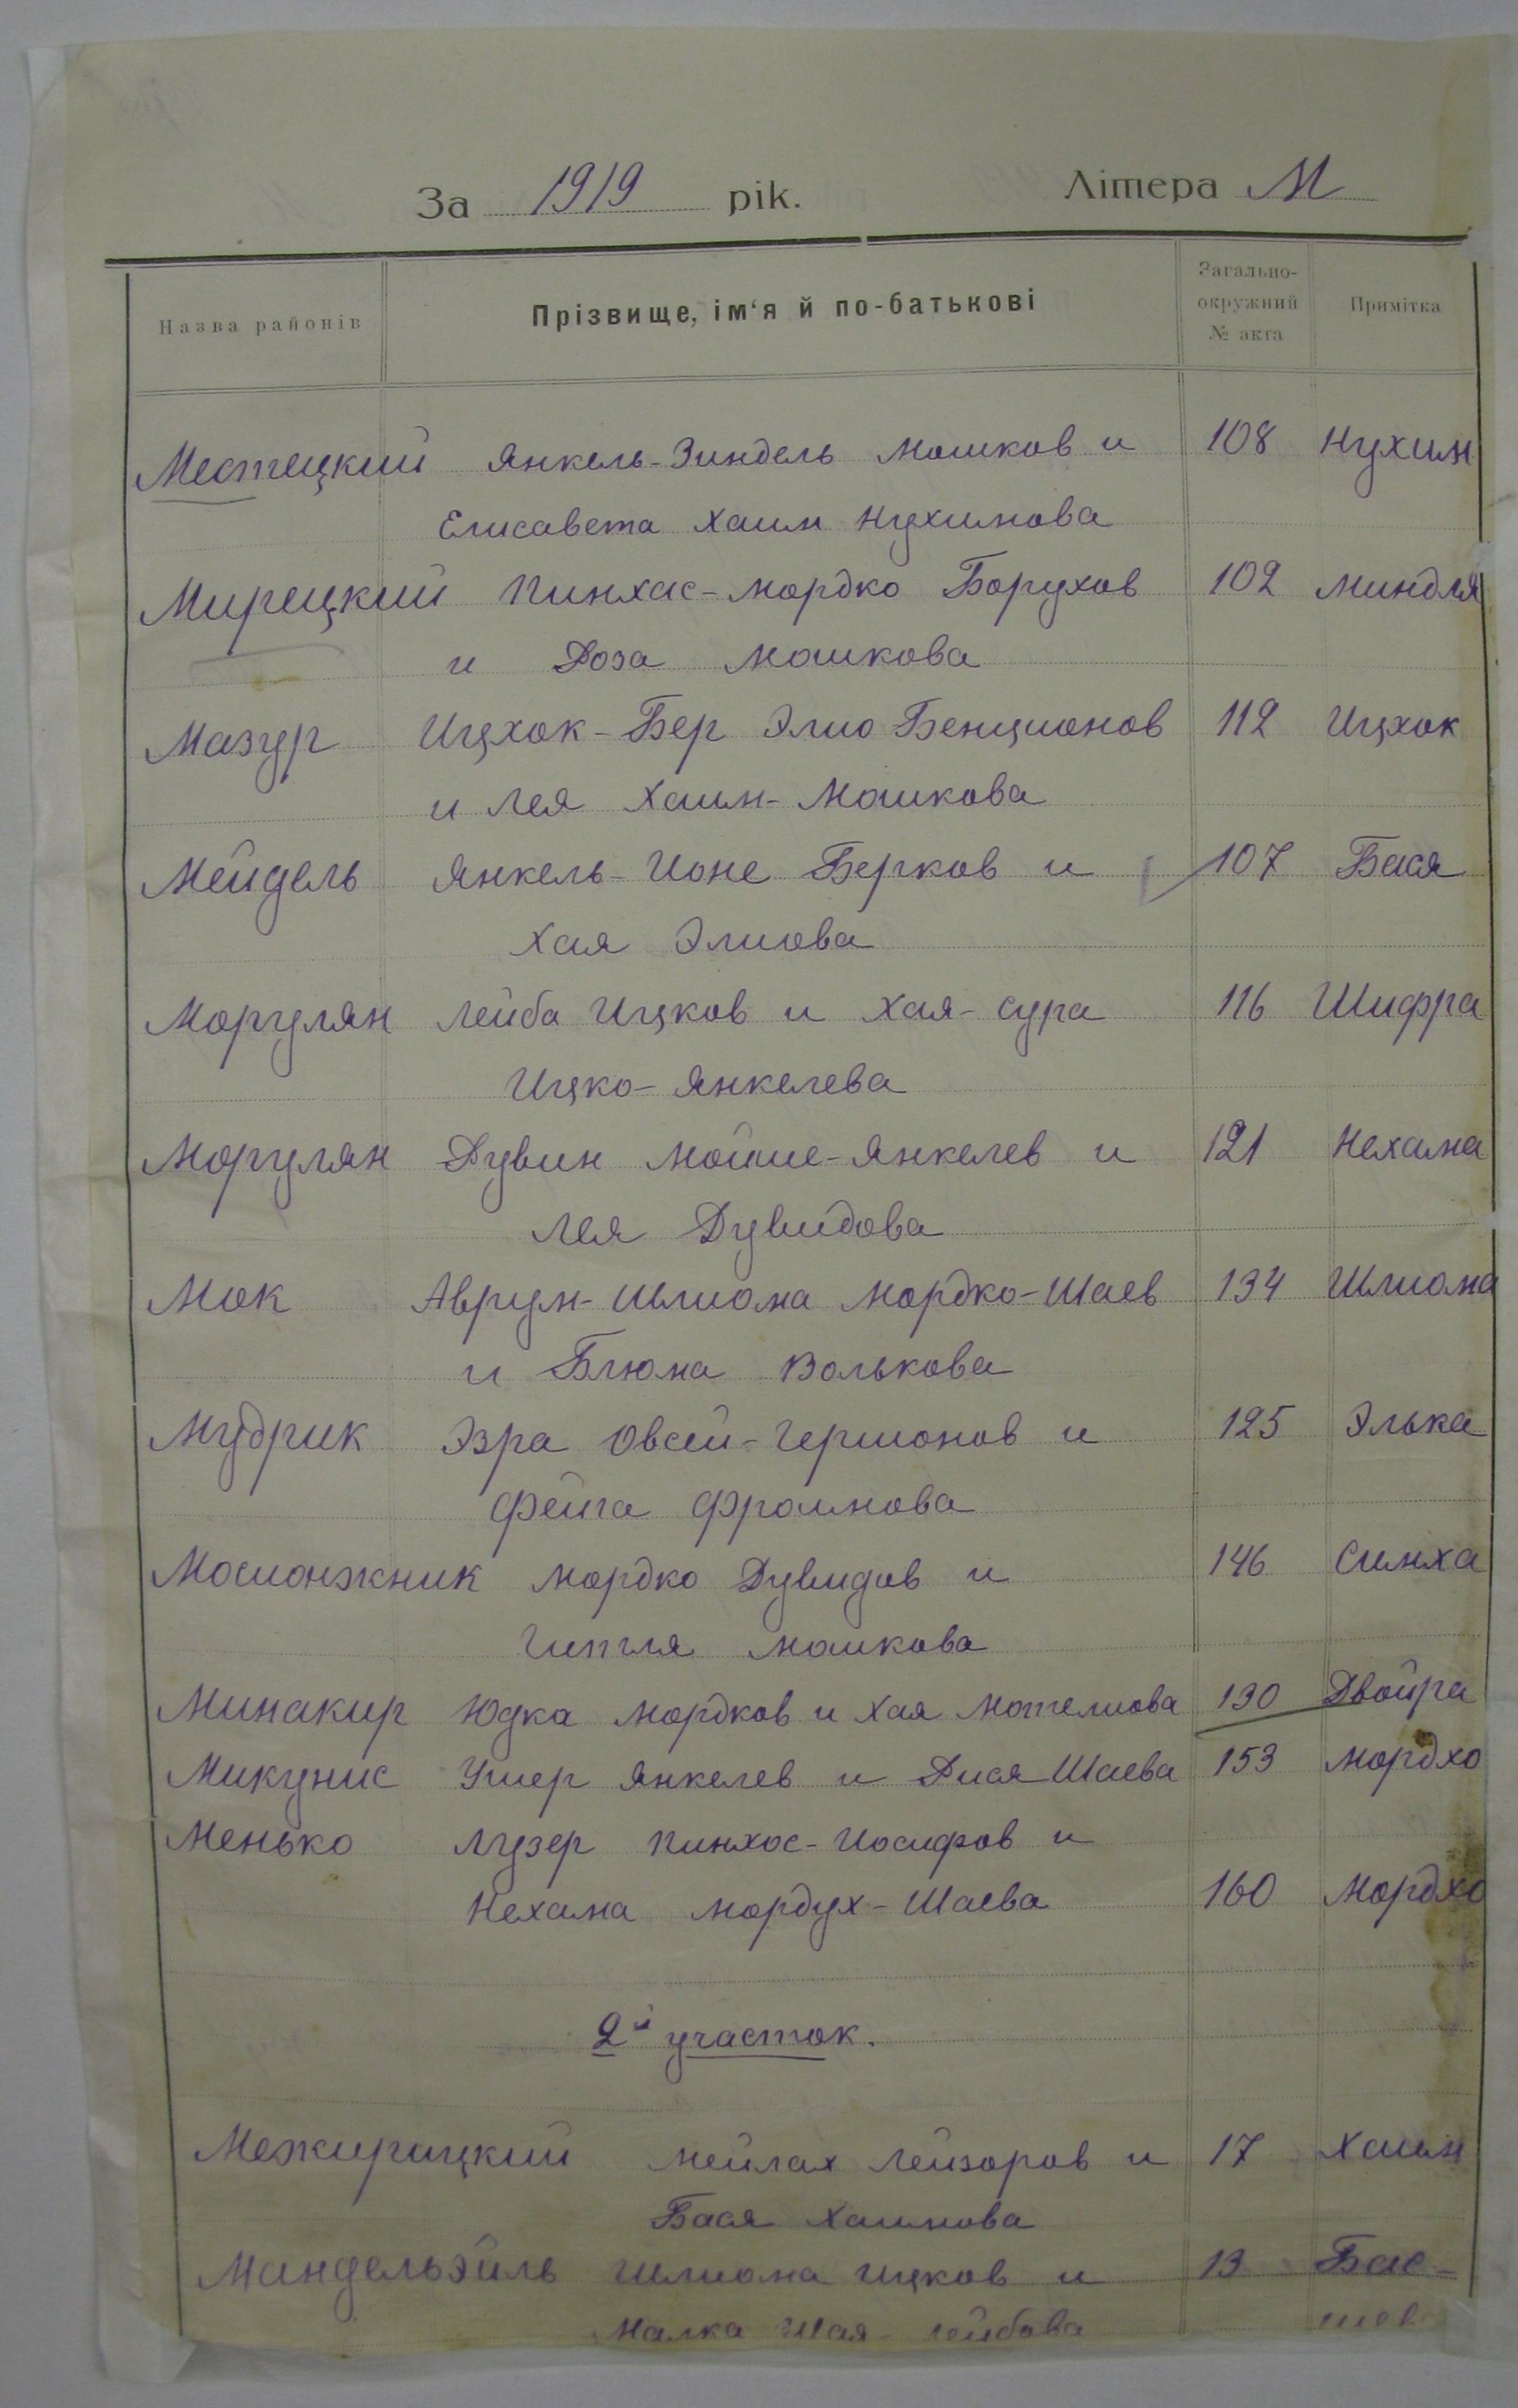 За 1919 рік. Літера М
Назва районів Прізвище, ім'я й по-батькові Загально-окружний № акта Примітка
Местецкий Янкель-Зиндель Мошков и 108 Нухим
Елисавета Хаим Нухимова
Мирецкий Пинхас-Мордко Борухов 102 Миндля
и Роза Мошкова
Мазур Ицхок-Бер Элио Бенционов 112 Ицхок
и Лея Хаим-Мошкова
Мейдель Янкель-Ионе Берков и 107 Бася
Хая Элиова
Моргулян Лейба Ицков и Хая-Сура 116 Шифра
Ицко-Янкелева
Моргулян Дувин Мойше-Янкелев и 121 Нехама
Лея Дувидова
Мок Аврум-Шлиома Мордко-Шаев 134 Шлиома
и Блюма Волькова
Мудрик Эзра Овсей-Гершонов и 125 Элька
Фейга Фроимова
Мосионжник Мордко Дувидов и 146 Симха
Гитля Мошкова
Минакир Юдка Мордков и Хая Мотелиова 130 Двойра
Микунис Ушер Янкелев и Дися Шаева 153 Мордхо
Менько Лузер Пинхос-Иосифов и
Нехама Мордух-Шаева 160 Мордхо
2й участок.
Межирицкий Мейлах Лейзоров и 17 Хаим
Бася Хаимова
Мандельэйль Шлиома Ицков и 13 Бас-
Малка Шая-Лейбова шев